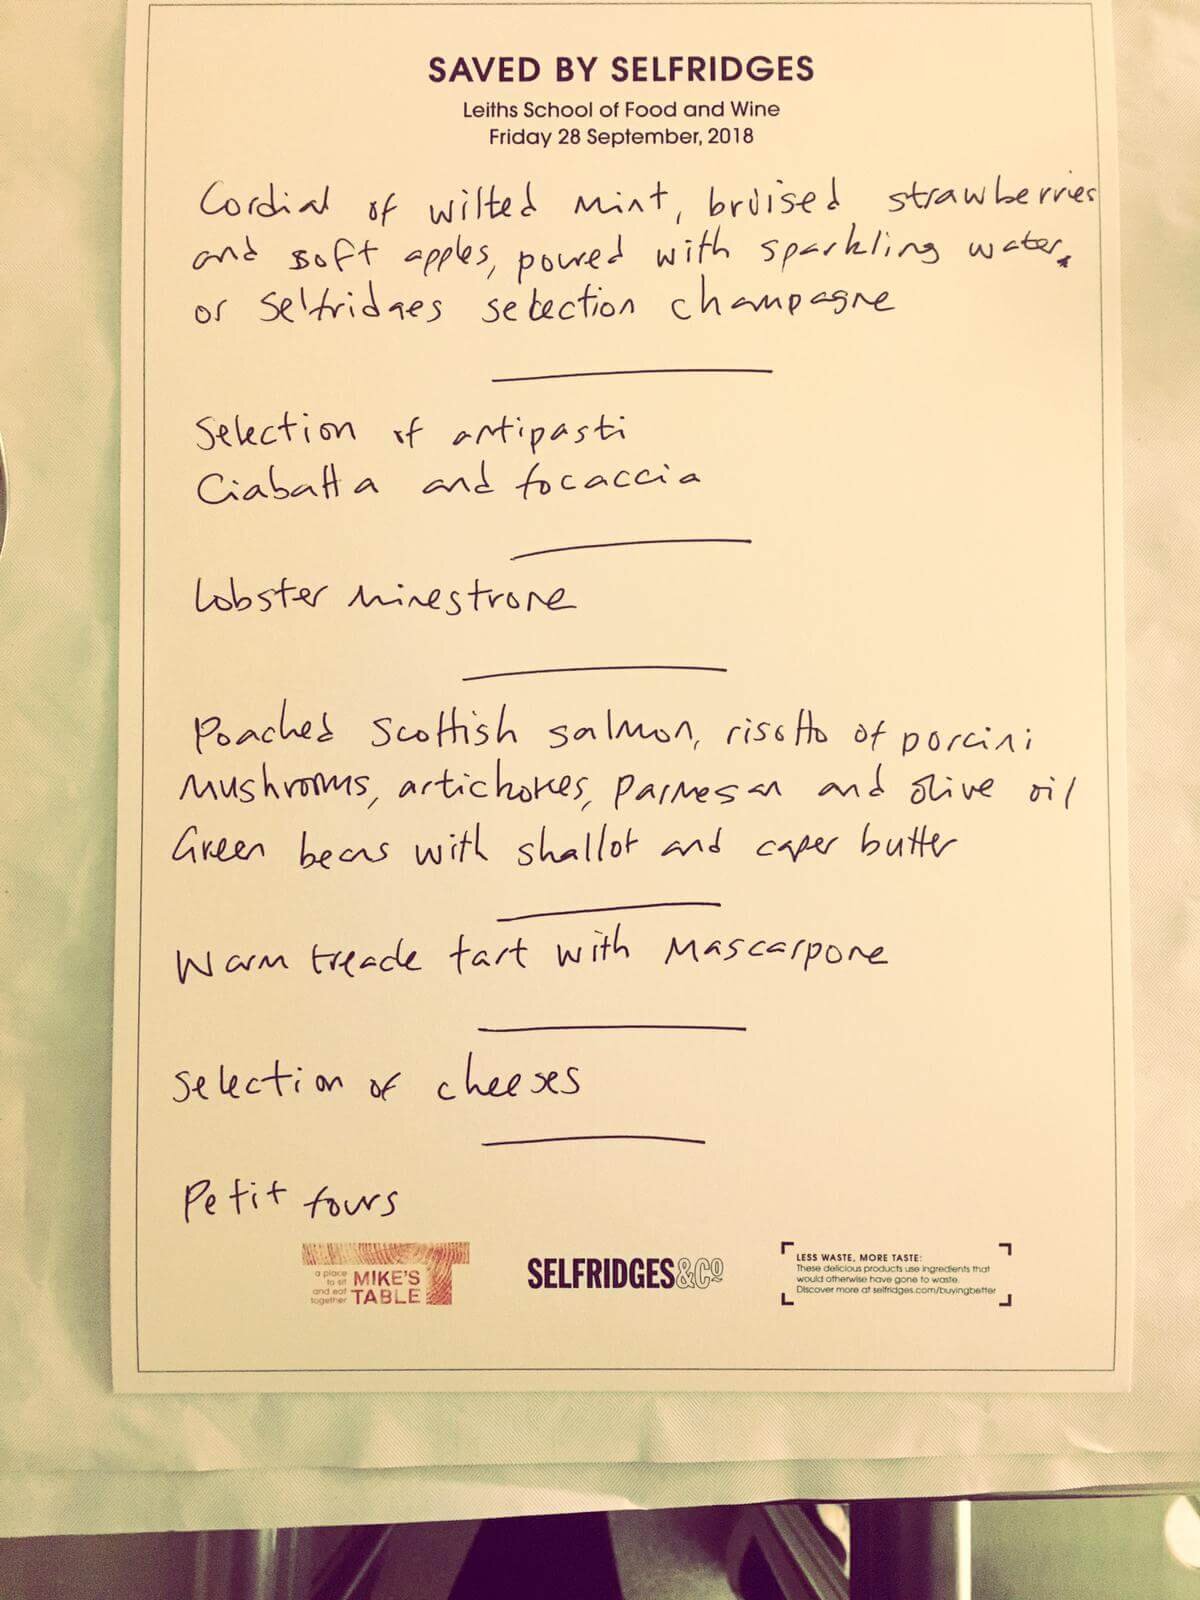 SAVED BY SELFRIDGES
Leiths School of Food and Wine
Friday 28 September, 2018
Cordial of wilted mint, bruised strawberries
and soft apples, poured with sparkling water,
or Selfridges selection champagne
Selection of antipasti
Ciabatta and focaccia
Lobster minestrone
Poached Scottish salmon, risotto of porcini
mushrooms, artichokes, parmesan and olive oil
Green beans with shallot and caper butter
Warm treacle tart with mascarpone
Selection of cheeses
Petit fours
a place
to sit
and eat
together
MIKE'S
TABLE
SELFRIDGES&CO
LESS WASTE, MORE TASTE:
These delicious products use ingredients that
would otherwise have gone to waste.
Discover more at selfridges.com/buyingbetter